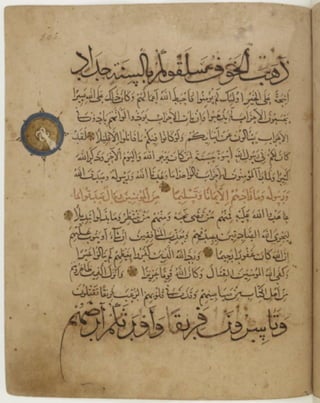 ذهب الخوف سلقوكم بالسنة حداد
اشحة على الخير اولئك لم يؤمنوا فاحبط الله اعمالهم وكان ذلك على الله يسيرا
يحسبون الاحزاب لم يذهبوا وان يات الاحزاب يودوا لو انهم بادون في
الاعراب يسالون عن انبائكم ولو كانوا فيكم ما قاتلوا الا قليلا لقد
كان لكم في رسول الله اسوة حسنة لمن كان يرجو الله واليوم الاخر وذكر الله
كثيرا ولما رأى المؤمنون الاحزاب قالوا هذا ما وعدنا الله ورسوله وصدق الله
ورسوله وما زادهم الا ايمانا وتسليما من المؤمنين رجال صدقوا ما
عاهدوا الله عليه فمنهم من قضى نحبه ومنهم من ينتظر وما بدلوا تبديلا
ليجزي الله الصادقين بصدقهم ويعذب المنافقين ان شاء او يتوب عليهم
ان الله كان غفورا رحيما ورد الله الذين كفروا بغيظهم لم ينالوا خيرا
وكفى الله المؤمنين القتال وكان الله قويا عزيزا وانزل الذين ظاهروهم
من اهل الكتاب من صياصيهم وقذف في قلوبهم الرعب فريقا تقتلون
وتاسرون فريقا واورثكم ارضهم